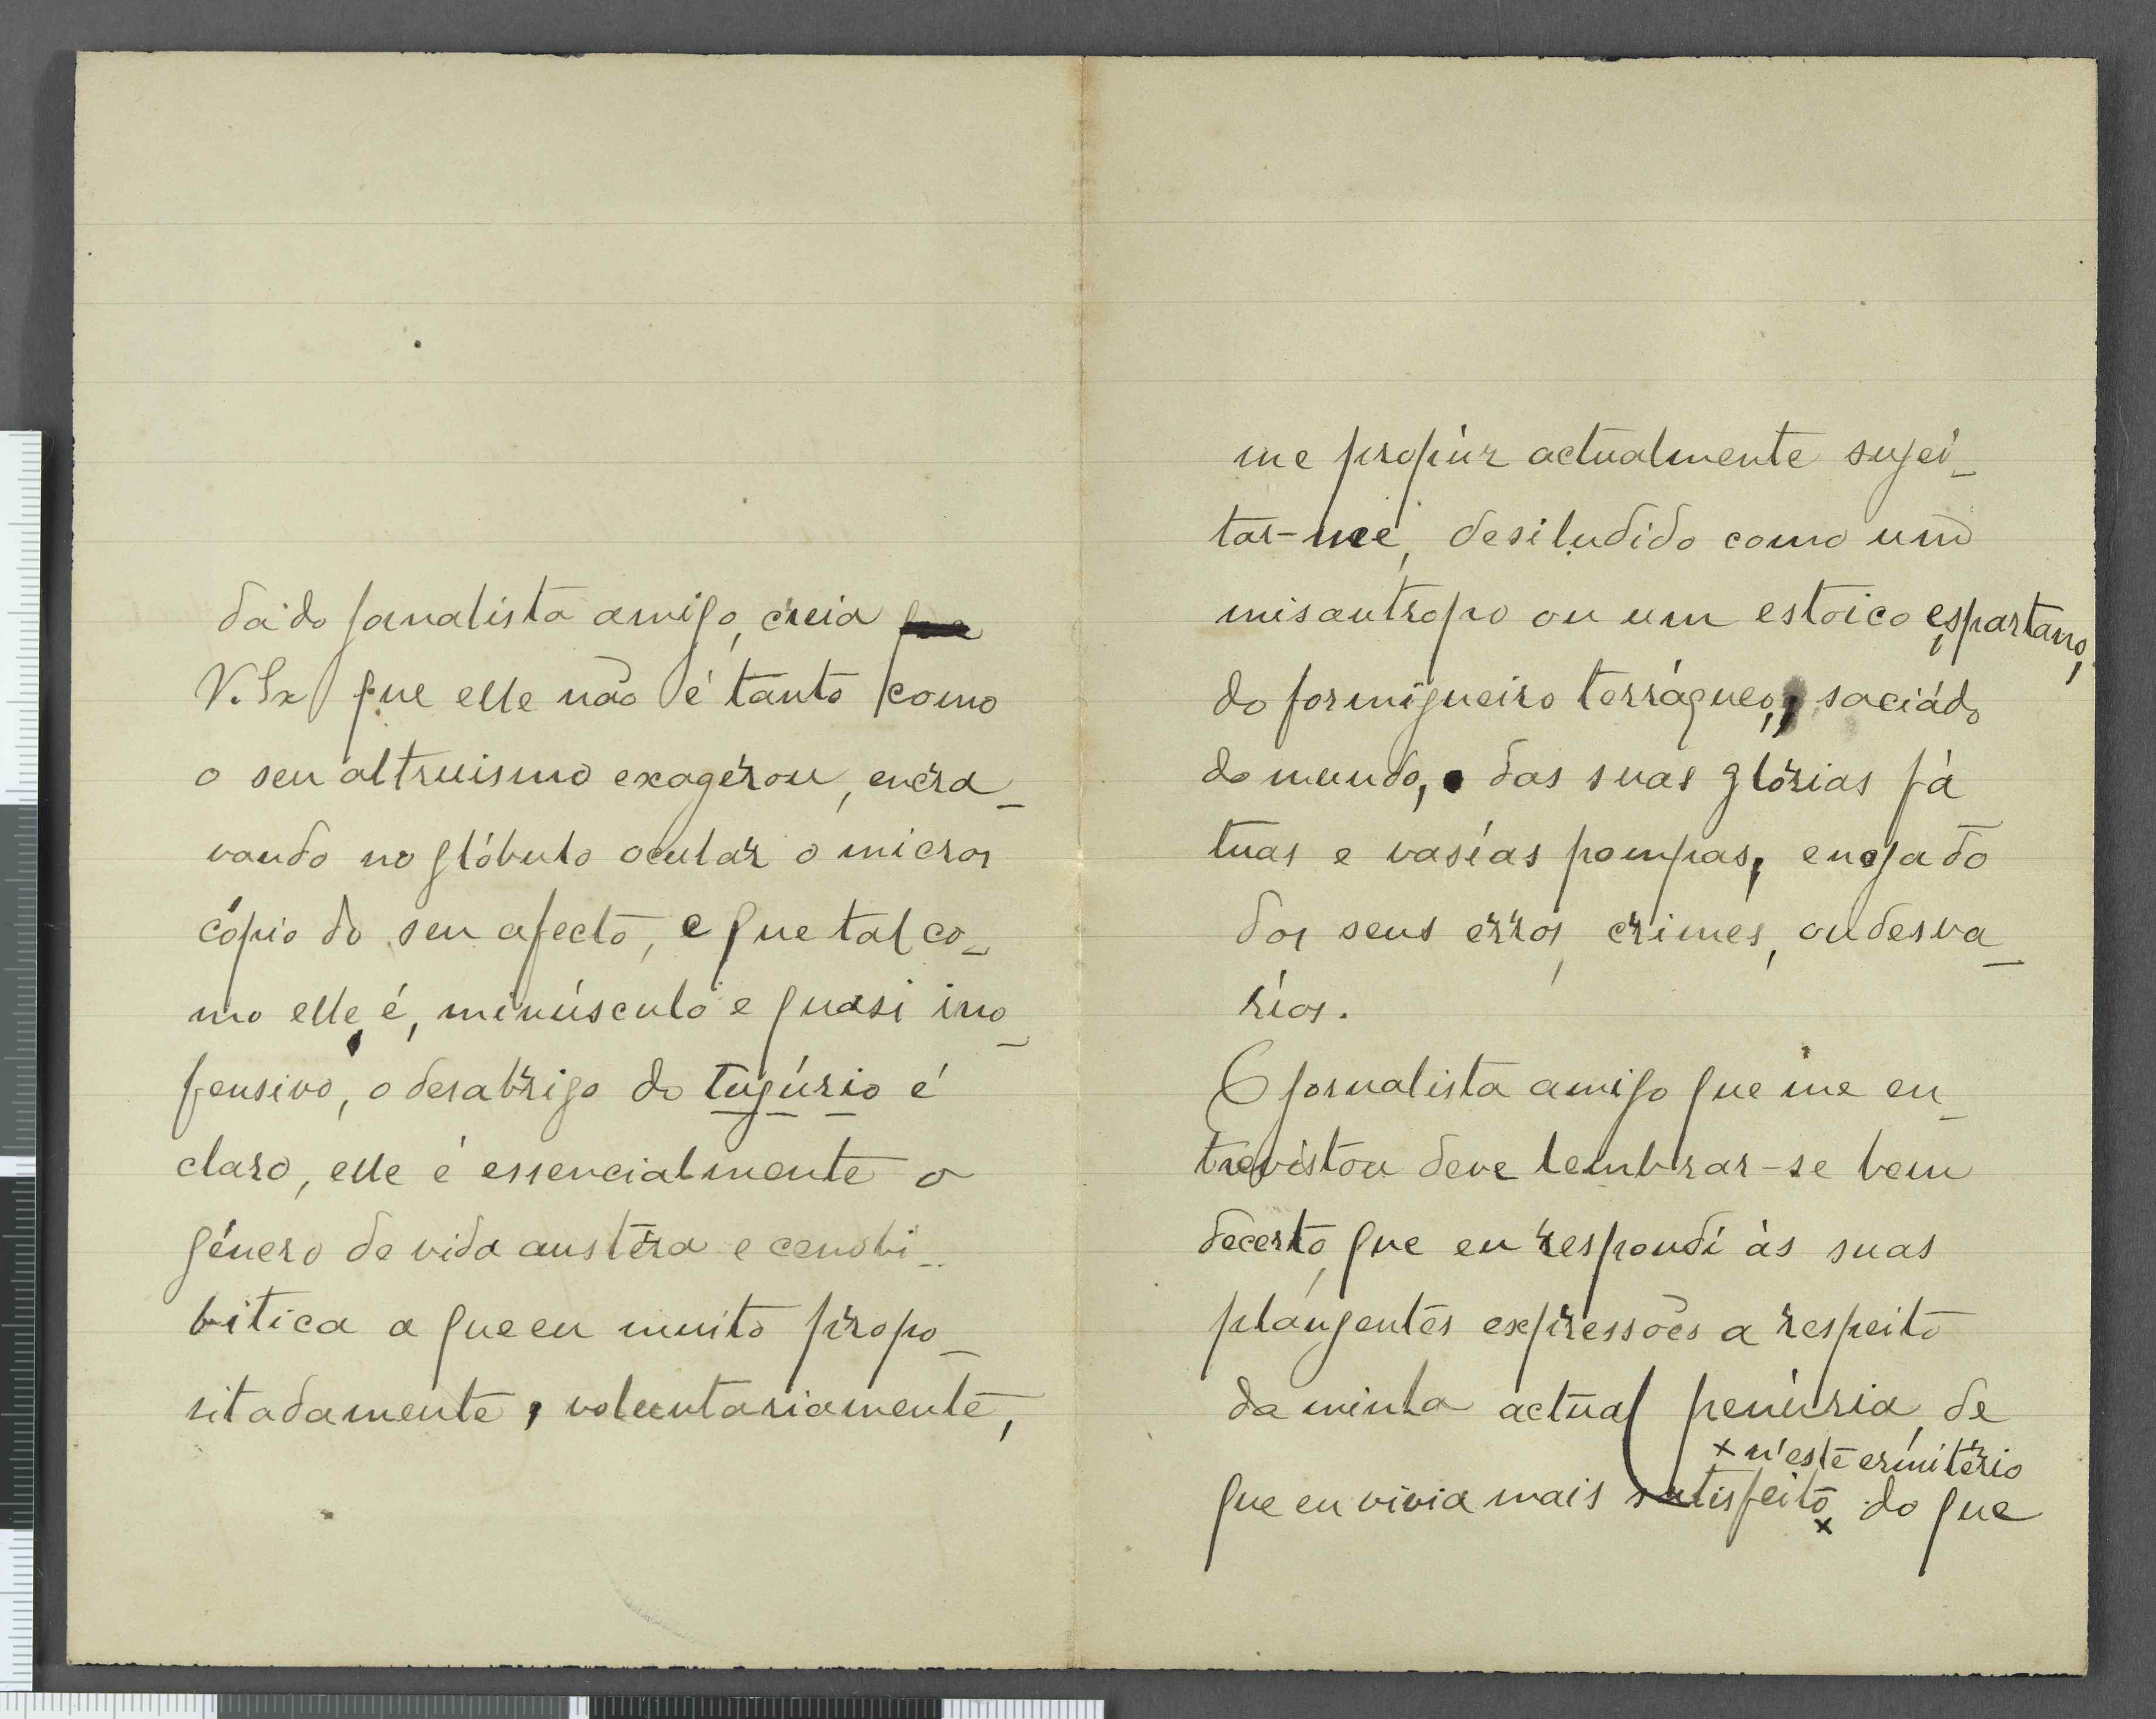 da do jornalista amigo, creia que
V. Sx que elle não é tanto como
o seu altruismo exagerou, encra_
vando no glóbulo ocular o micros
cópio do seu afecto, e que tal co_
mo elle é, minúsculo e quasi ino_
fensivo, o desabrigo do tugúrio é
claro, elle é essencialmente o
género de vida austéra e cenobi_
bitica a que eu muito propo_
sitadamente, voluntariamente,
me propúz actualmente sujei_
tar-me, desiludido como um
misantropo ou um estoico espartano,
do formigueiro terráqueo, saciádo
do mundo, das suas glórias fá
tuas e vasías pompas, enojado
dos seus erros, crimes, ou desva_
ríos.
O jornalista amigo que me en_
trevistou deve lembrar-se bem
decerto, que eu respondí ás suas
plangentes expressões a respeito
da minha actual penúria, de
× n'este ermitério
que eu vivia mais satisfeito × do que